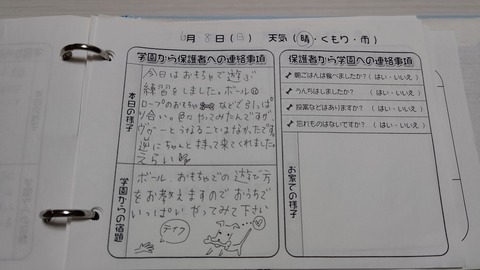 6月 8日(日) 天気(晴・くもり・雨)
学園から保護者への連絡事項
本日の様子
今日はおもちゃで遊ぶ
練習をしました。ボール
ロープのおもちゃなどで引っぱ
り合い。色々やってみたんですが、
ヴゥーとうなることはなかったです。
逆にちゃんと持って来てくれました。
えらい
学園からの宿題
ボール、おもちゃでの遊び方
をお教えますのでおうちで
いっぱいやってみて下さい
テイク
保護者から学園への連絡事項
朝ごはんは食べましたか?(はい・いいえ)
うんちはしましたか?(はい・いいえ)
投薬などはありますか?(はい・いいえ)
忘れものはないですか?(はい・いいえ)
お家での様子